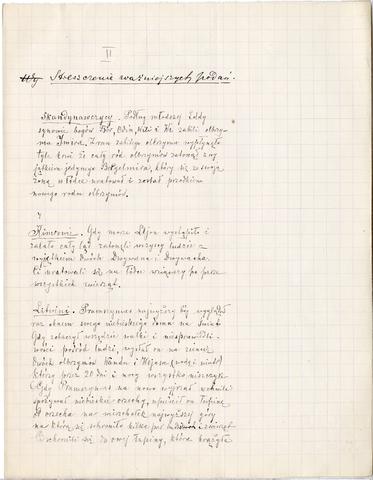 II
Streszczenie ważniejszych podań.
Skandynawczycy. Podług młodszej Eddy
synowie bogów Bör, Odin, Wili i We zabili olbrzy-
ma Imira. Z rany zabitego olbrzyma wypłynęło
tyle krwi że cały ród olbrzymów zatonął z wy-
jątkiem jedynego Bergelmira, który się ze swoją
żoną w łódce uratował i został przodkiem
nowego rodu olbrzymów.
Kimrowie. Gdy morze Llyon wystąpiło i
zalało cały ląd zatonęli wszyscy ludzie z
wyjątkiem dwóch Drywana i Drywacha.
Ci uratowali się na łodzi wziąwszy po parze
wszystkich zwierząt.
Litwini. Pramżymas najwyższy bóg wyglądał
raz oknem swego niebieskiego domu na świat
Gdy zobaczył wszędzie walki i niesprawiedli-
wości pośród ludzi, wysłał on na ziemię
dwóch olbrzymów Wandu i Wėjas (wodę i wiatr)
którzy przez 20 dni i nocy wszystko niszczyli.
Gdy Pramżymas na nowo wyjrzał właśnie
spożywał niebieskie orzechy, upuścił on łupinę
z orzecha na wierzchołek najwyższej góry
na którą się schroniło kilka par ludzi i zwierząt
schronili się do owej łupiny, która krążyła